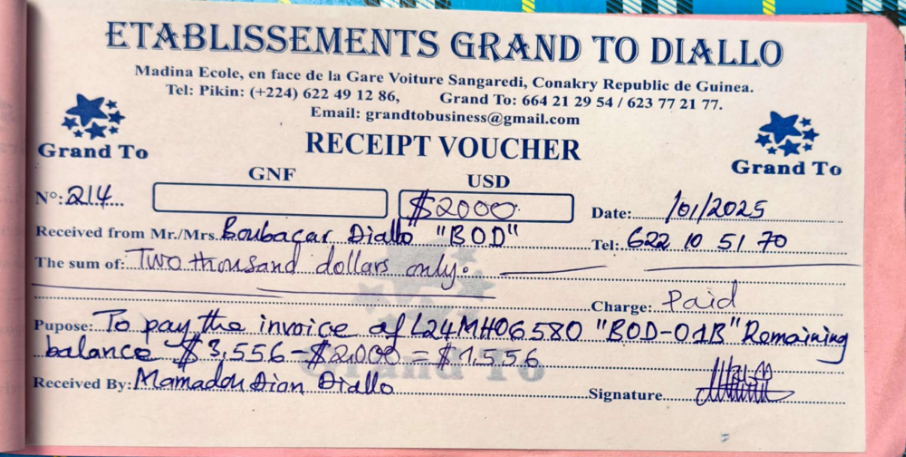 ETABLISSEMENTS GRAND TO DIALLO
Madina Ecole, en face de la Gare Voiture Sangaredi, Conakry Republic de Guinea.
Tel: Pikin: (+224) 622 49 12 86, Grand To: 664 21 29 54 / 623 77 21 77.
Email: grandtobusiness@gmail.com
Grand To RECEIPT VOUCHER Grand To
GNF USD
N°: 214 $2000 Date: /01/2025
Received from Mr./Mrs. Boubacar Diallo "BOD" Tel: 622 10 51 70
The sum of: Two thousand dollars only.
Charge: Paid
Pupose: To pay the invoice of L24MH06580 "BOD-01B" Remaining
balance $3,556 - $2,000 = $1,556
Grand To
Received By: Mamadou Dian Diallo Signature